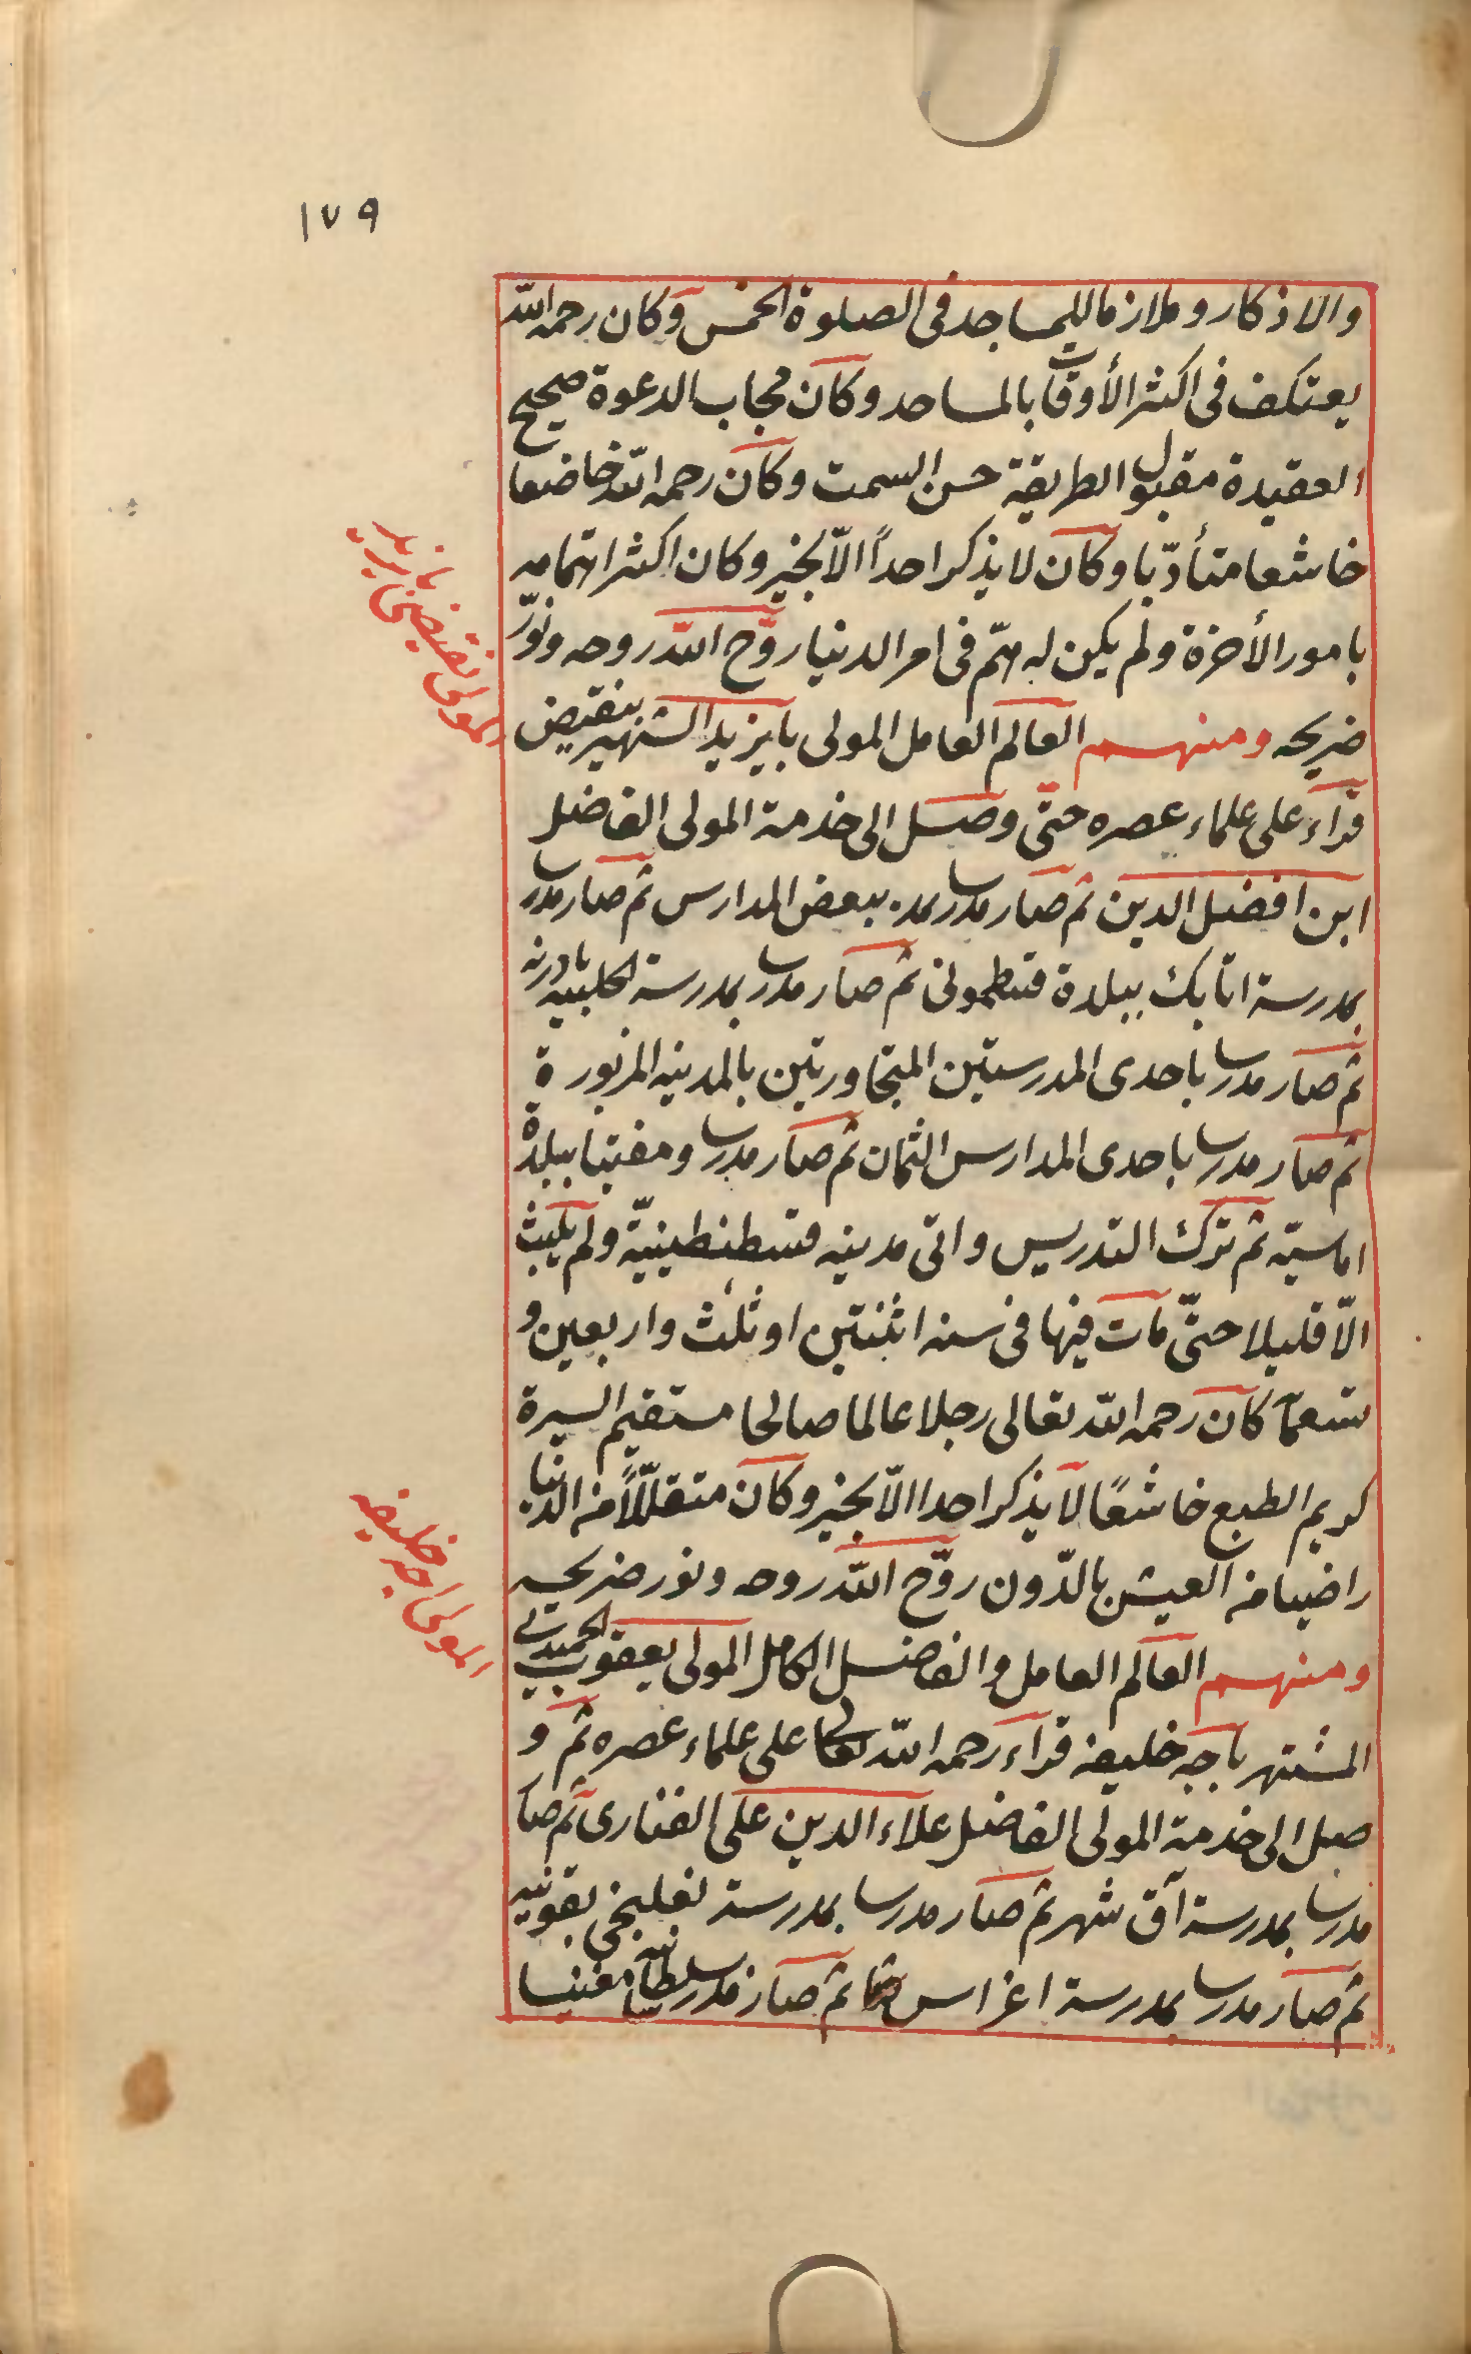 ١٧٩
والاذكار وملازما للمساجد فى الصلوة الخمس وكان رحمه الله
يعتكف فى اكثر الأوقات بالمساجد وكان مجاب الدعوة صحيح
العقيدة مقبول الطريقة حسن السمت وكان رحمه الله خاضعا
خاشعا متأدّبا وكان لا يذكر احداً الاّ بخير وكان اكثر اهتمامه
بامور الأخرة ولم يكن له همّ فى امر الدنيا روّح الله روحه ونوّر
ضريحه ومنهم العالم العامل المولى بايزيد الشهير بنقيض
قراء على علماء عصره حتّى وصل الى خدمة المولى الفاضل
ابن افضل الدين ثم صار مدرسا ببعض المدارس ثم صار مدرسا
بمدرسة اتابك ببلدة قسطمونى ثم صار مدرسا بمدرسة الحلبيه بادرنه
ثم صار مدرسا باحدى المدرستين المتجاورتين بالمدينه المزبورة
ثم صار مدرسا باحدى المدارس الثمان ثم صار مدرسا ومفتيا ببلدة
اماسيّه ثم ترك التدريس واتى مدينه قسطنطينيّة ولم يلبث
الاّ قليلا حتّى مات فيها فى سنه اثنتين او ثلث واربعين و
تسعمآ كان رحمه الله تعالى رجلا عالما صالحا مستقيم السيرة
كريم الطبع خاشعًا لا يذكر احدا الاّ بخير وكان متقلّلاً من الدنيا
راضيا من العيش بالدّون روّح الله روحه ونور ضريحه
ومنهم العالم العامل والفاضل الكامل المولى يعقوب الحميدى
المشتهر باجه خليفه قراء رحمه الله تعالى على علماء عصره ثم و
صل الى خدمة المولى الفاضل علاء الدين على الفنارى ثم صا
مدرسا بمدرسة آق شهر ثم صار مدرسا بمدرسة بقونيه
ثم صار مدرسا بمدرسة اغراس ثم صار مدرسا مغنيسا
المولى نقيضى بايزيد
المولى اجه خليفه